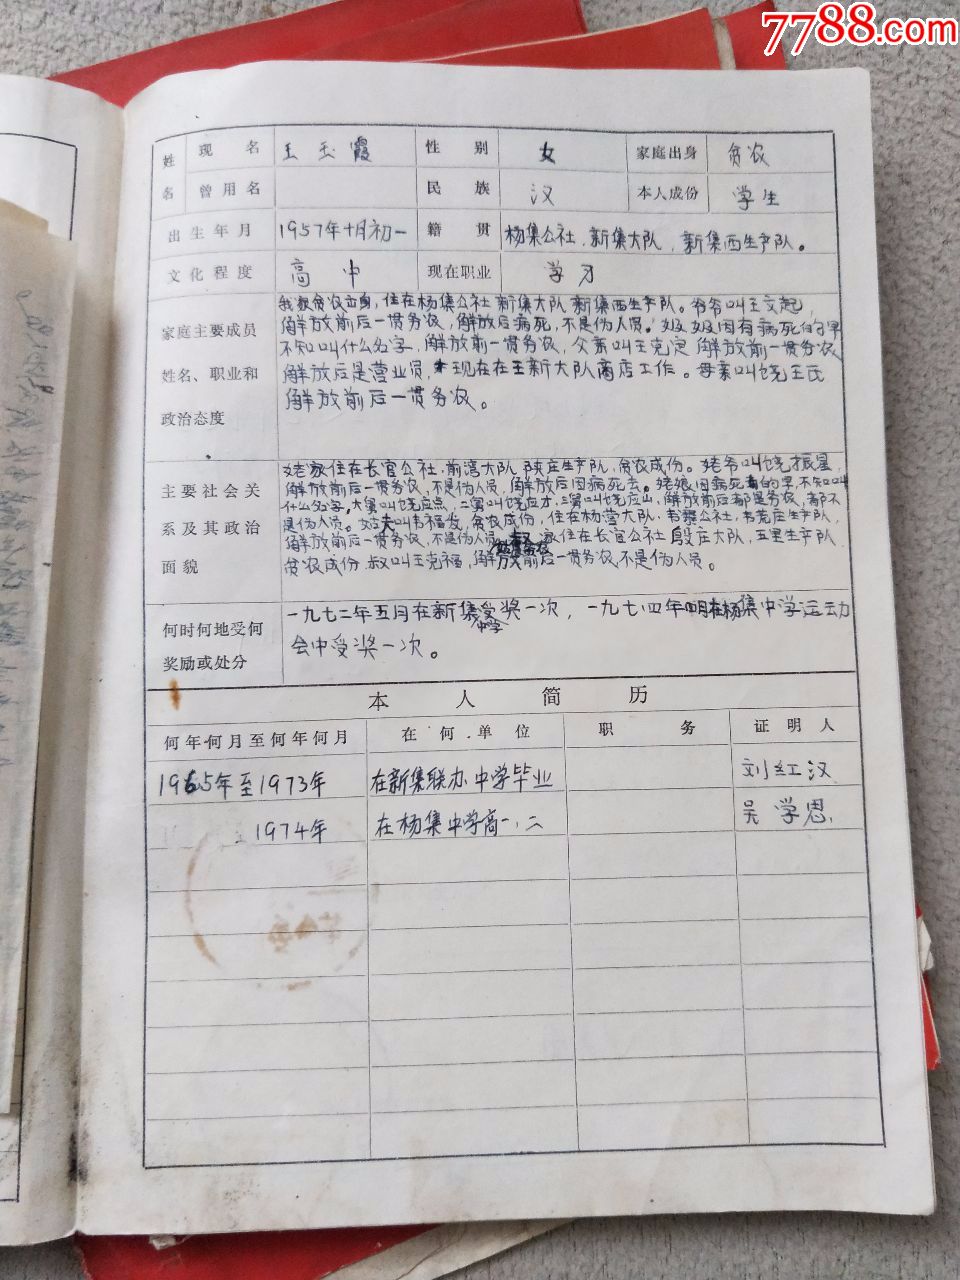 7788.com
姓名 现名 王玉霞 性别 女 家庭出身 贫农
曾用名 民族 汉 本人成份 学生
出生年月 1957年十月初一 籍贯 杨集公社,新集大队,新集西生产队。
文化程度 高中 现在职业 学习
家庭主要成员
姓名、职业和
政治态度
我家贫农出身,住在杨集公社新集大队新集西生产队。爷爷叫王文起,
解放前后一贯务农,解放后病死,不是伪人员。奶奶因有病死的早
不知叫什么名字,解放前一贯务农,父亲叫王克定解放前一贯务农
解放后是营业员,现在在王新大队商店工作。母亲叫饶王氏
解放前后一贯务农。
主要社会关
系及其政治
面貌
姥家住在长官公社,前湾大队陕庄生产队,贫农成份。姥爷叫饶振星,
解放前后一贯务农,不是伪人员,解放后因病死去。姥娘因病死的早不知叫
什么名字。大舅叫饶应点,二舅叫饶应才,三舅叫饶应山,解放前后都是务农,都不
是伪人员。姑夫叫韦福发,贫农成份,住在杨营大队,韦寨公社,韦荒庄生产队,
解放前后一贯务农,不是伪人员。叔家住在长官公社殷庄大队,五里生产队
贫农成份.叔叫王克福,解放前后一贯务农,不是伪人员。
何时何地受何
奖励或处分
一九七二年五月在新集中学受奖一次,一九七四年四月在杨集中学运动
会中受奖一次。
本人简历
何年何月至何年何月 在何单位 职务 证明人
1965年至1973年 在新集联办中学毕业 刘红汉
1974年 在杨集中学高一.二 吴学思.